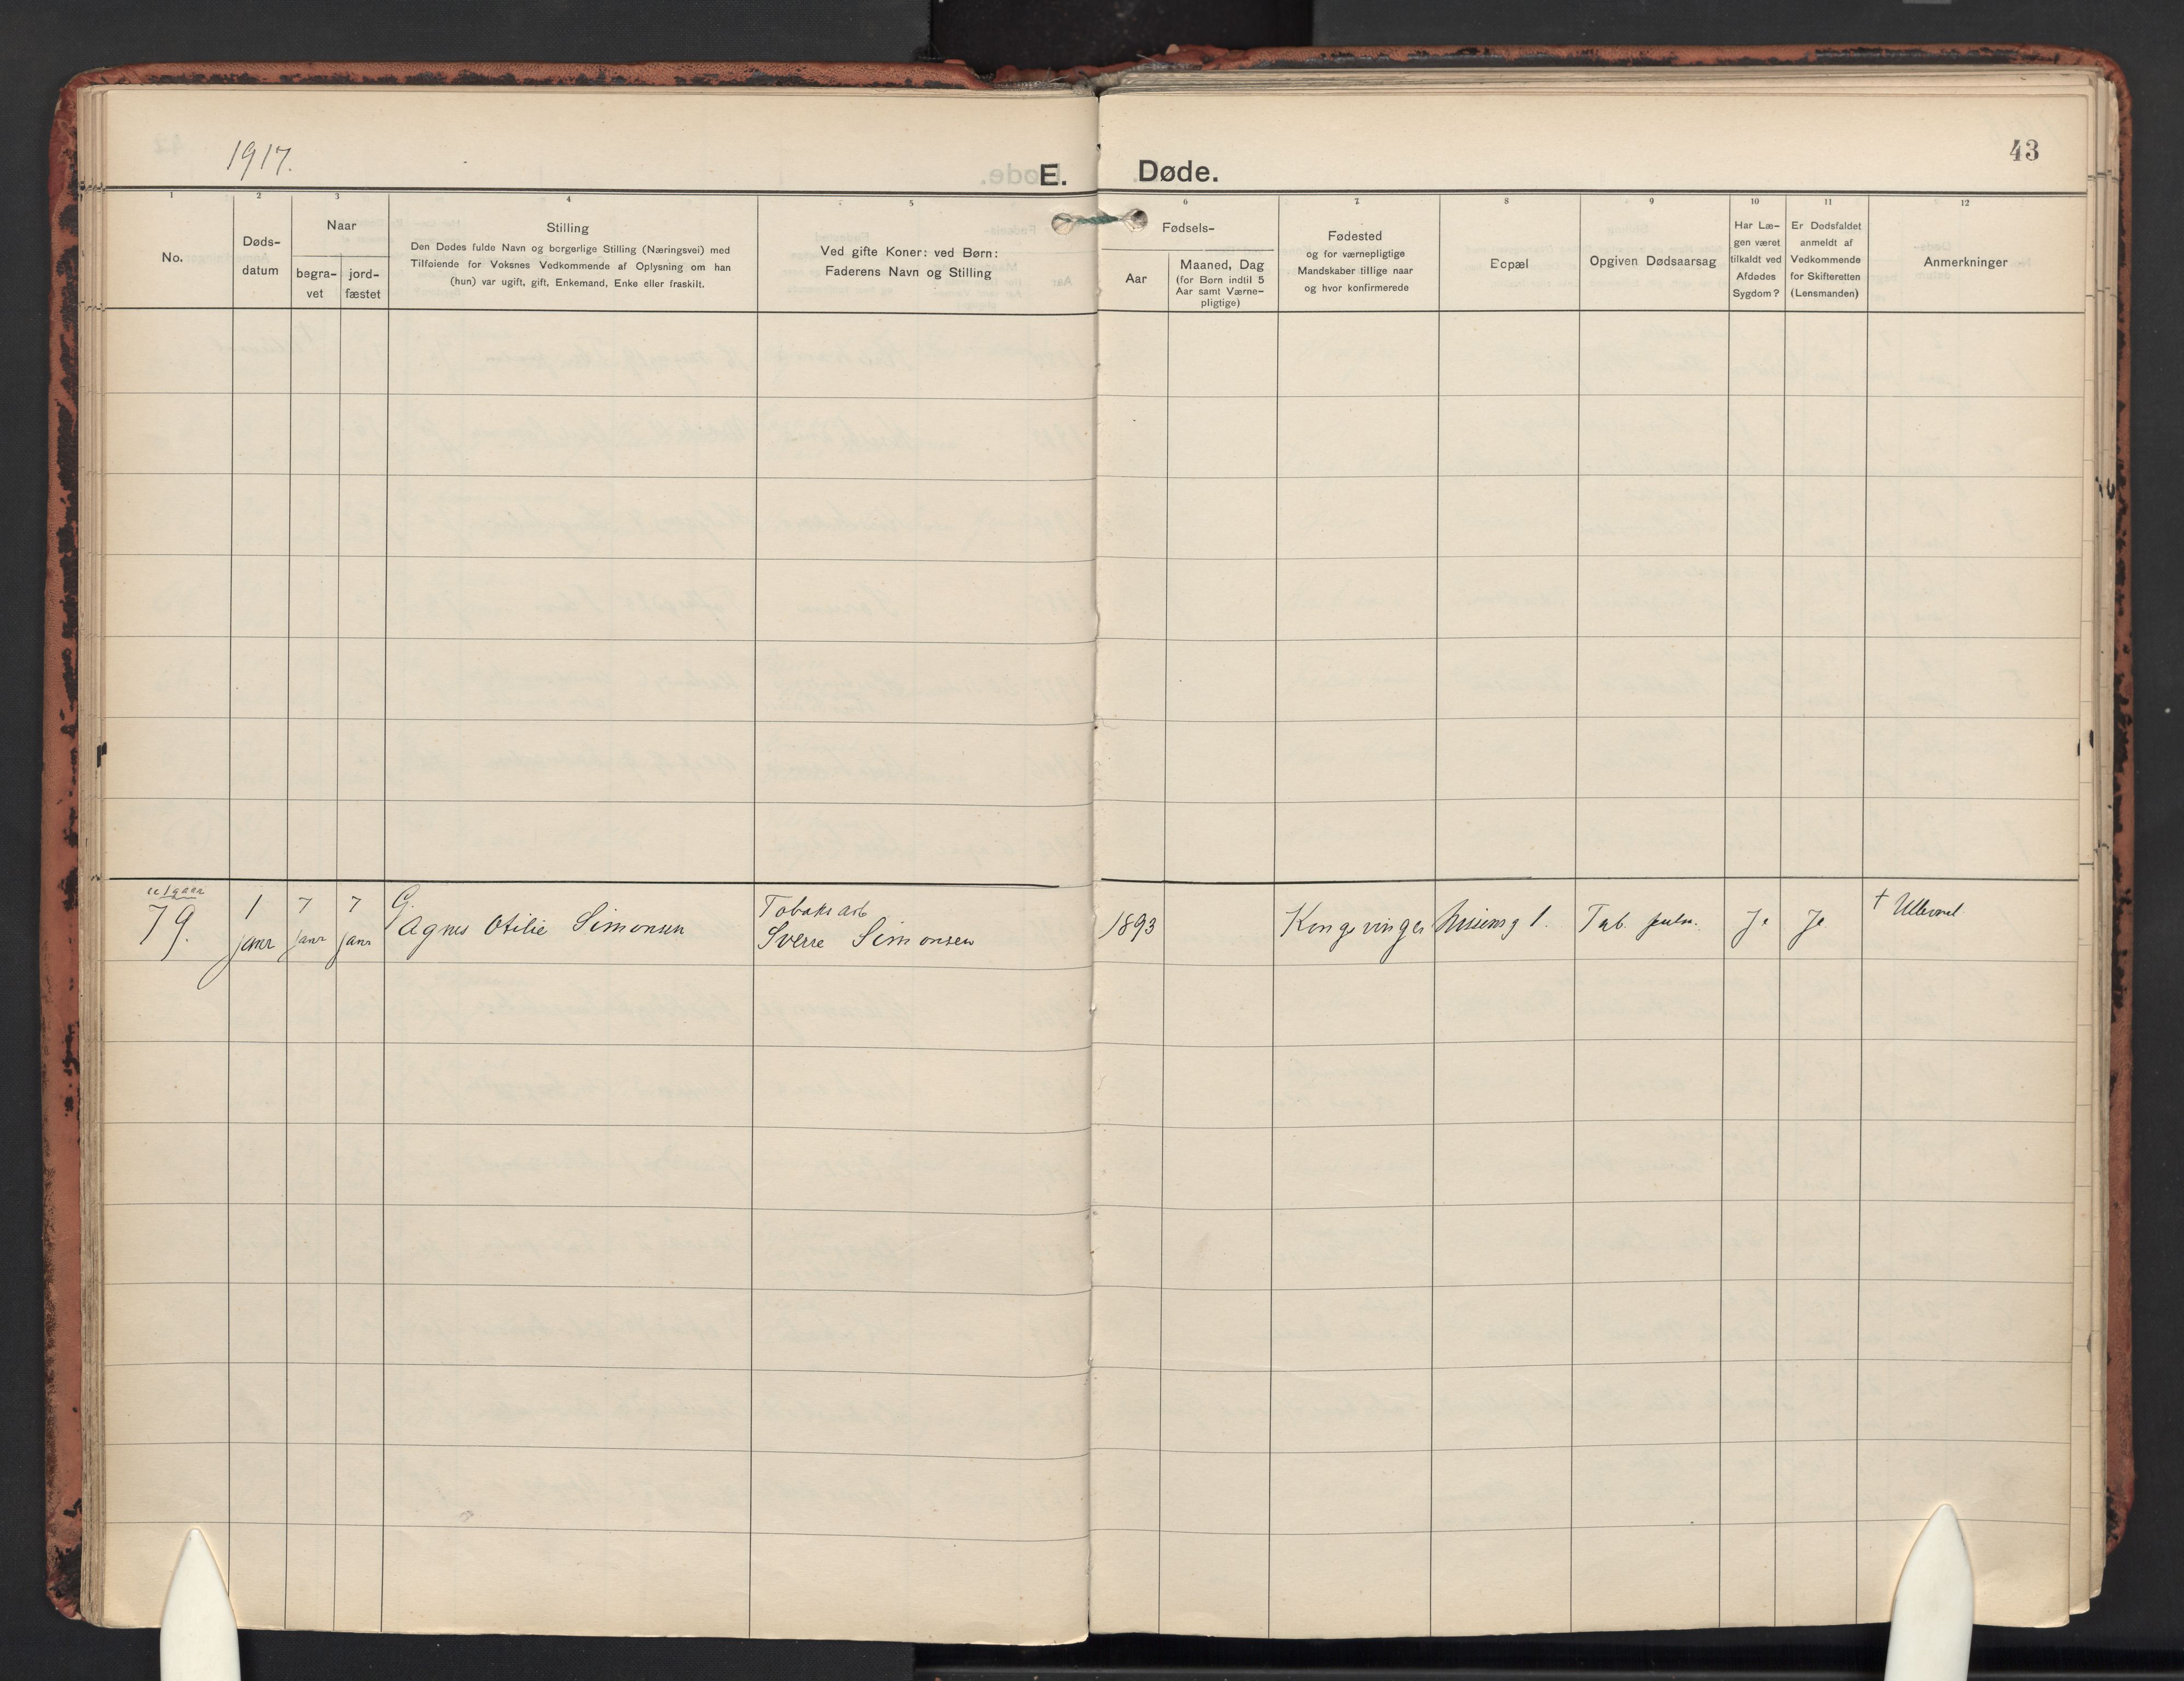 1917.
E. Døde.
43
1
2
3
4
5
6
7
8
9
10
11
12
No.
Døds-
datum
Naar
begra-
vet
jord-
fæstet
Stilling
Den Dødes fulde Navn og borgerlige Stilling (Næringsvei) med
Tilføiende for Voksnes Vedkommende af Oplysning om han
(hun) var ugift, gift, Enkemand, Enke eller fraskilt.
Ved gifte Koner: ved Børn:
Faderens Navn og Stilling
Fødsels-
Aar
Maaned, Dag
(for Børn indtil 5
Aar samt Værne-
pligtige)
Fødested
og for værnepligtige
Mandskaber tillige naar
og hvor konfirmerede
Bopæl
Opgiven Dødsaarsag
Har Læ-
gen været
tilkaldt ved
Afdødes
Sygdom?
Er Dødsfaldet
anmeldt af
Vedkommende
for Skifteretten
(Lensmanden)
Anmerkninger
utgaar
79.
1
janr
7
janr
7
janr
G.
Agnes Otilie Simonsen
Tobaks arb
Sverre Simonsen
1893
Kongsvinger
1.
Tub. pulm.
Ja
Ja
† Ullevaal